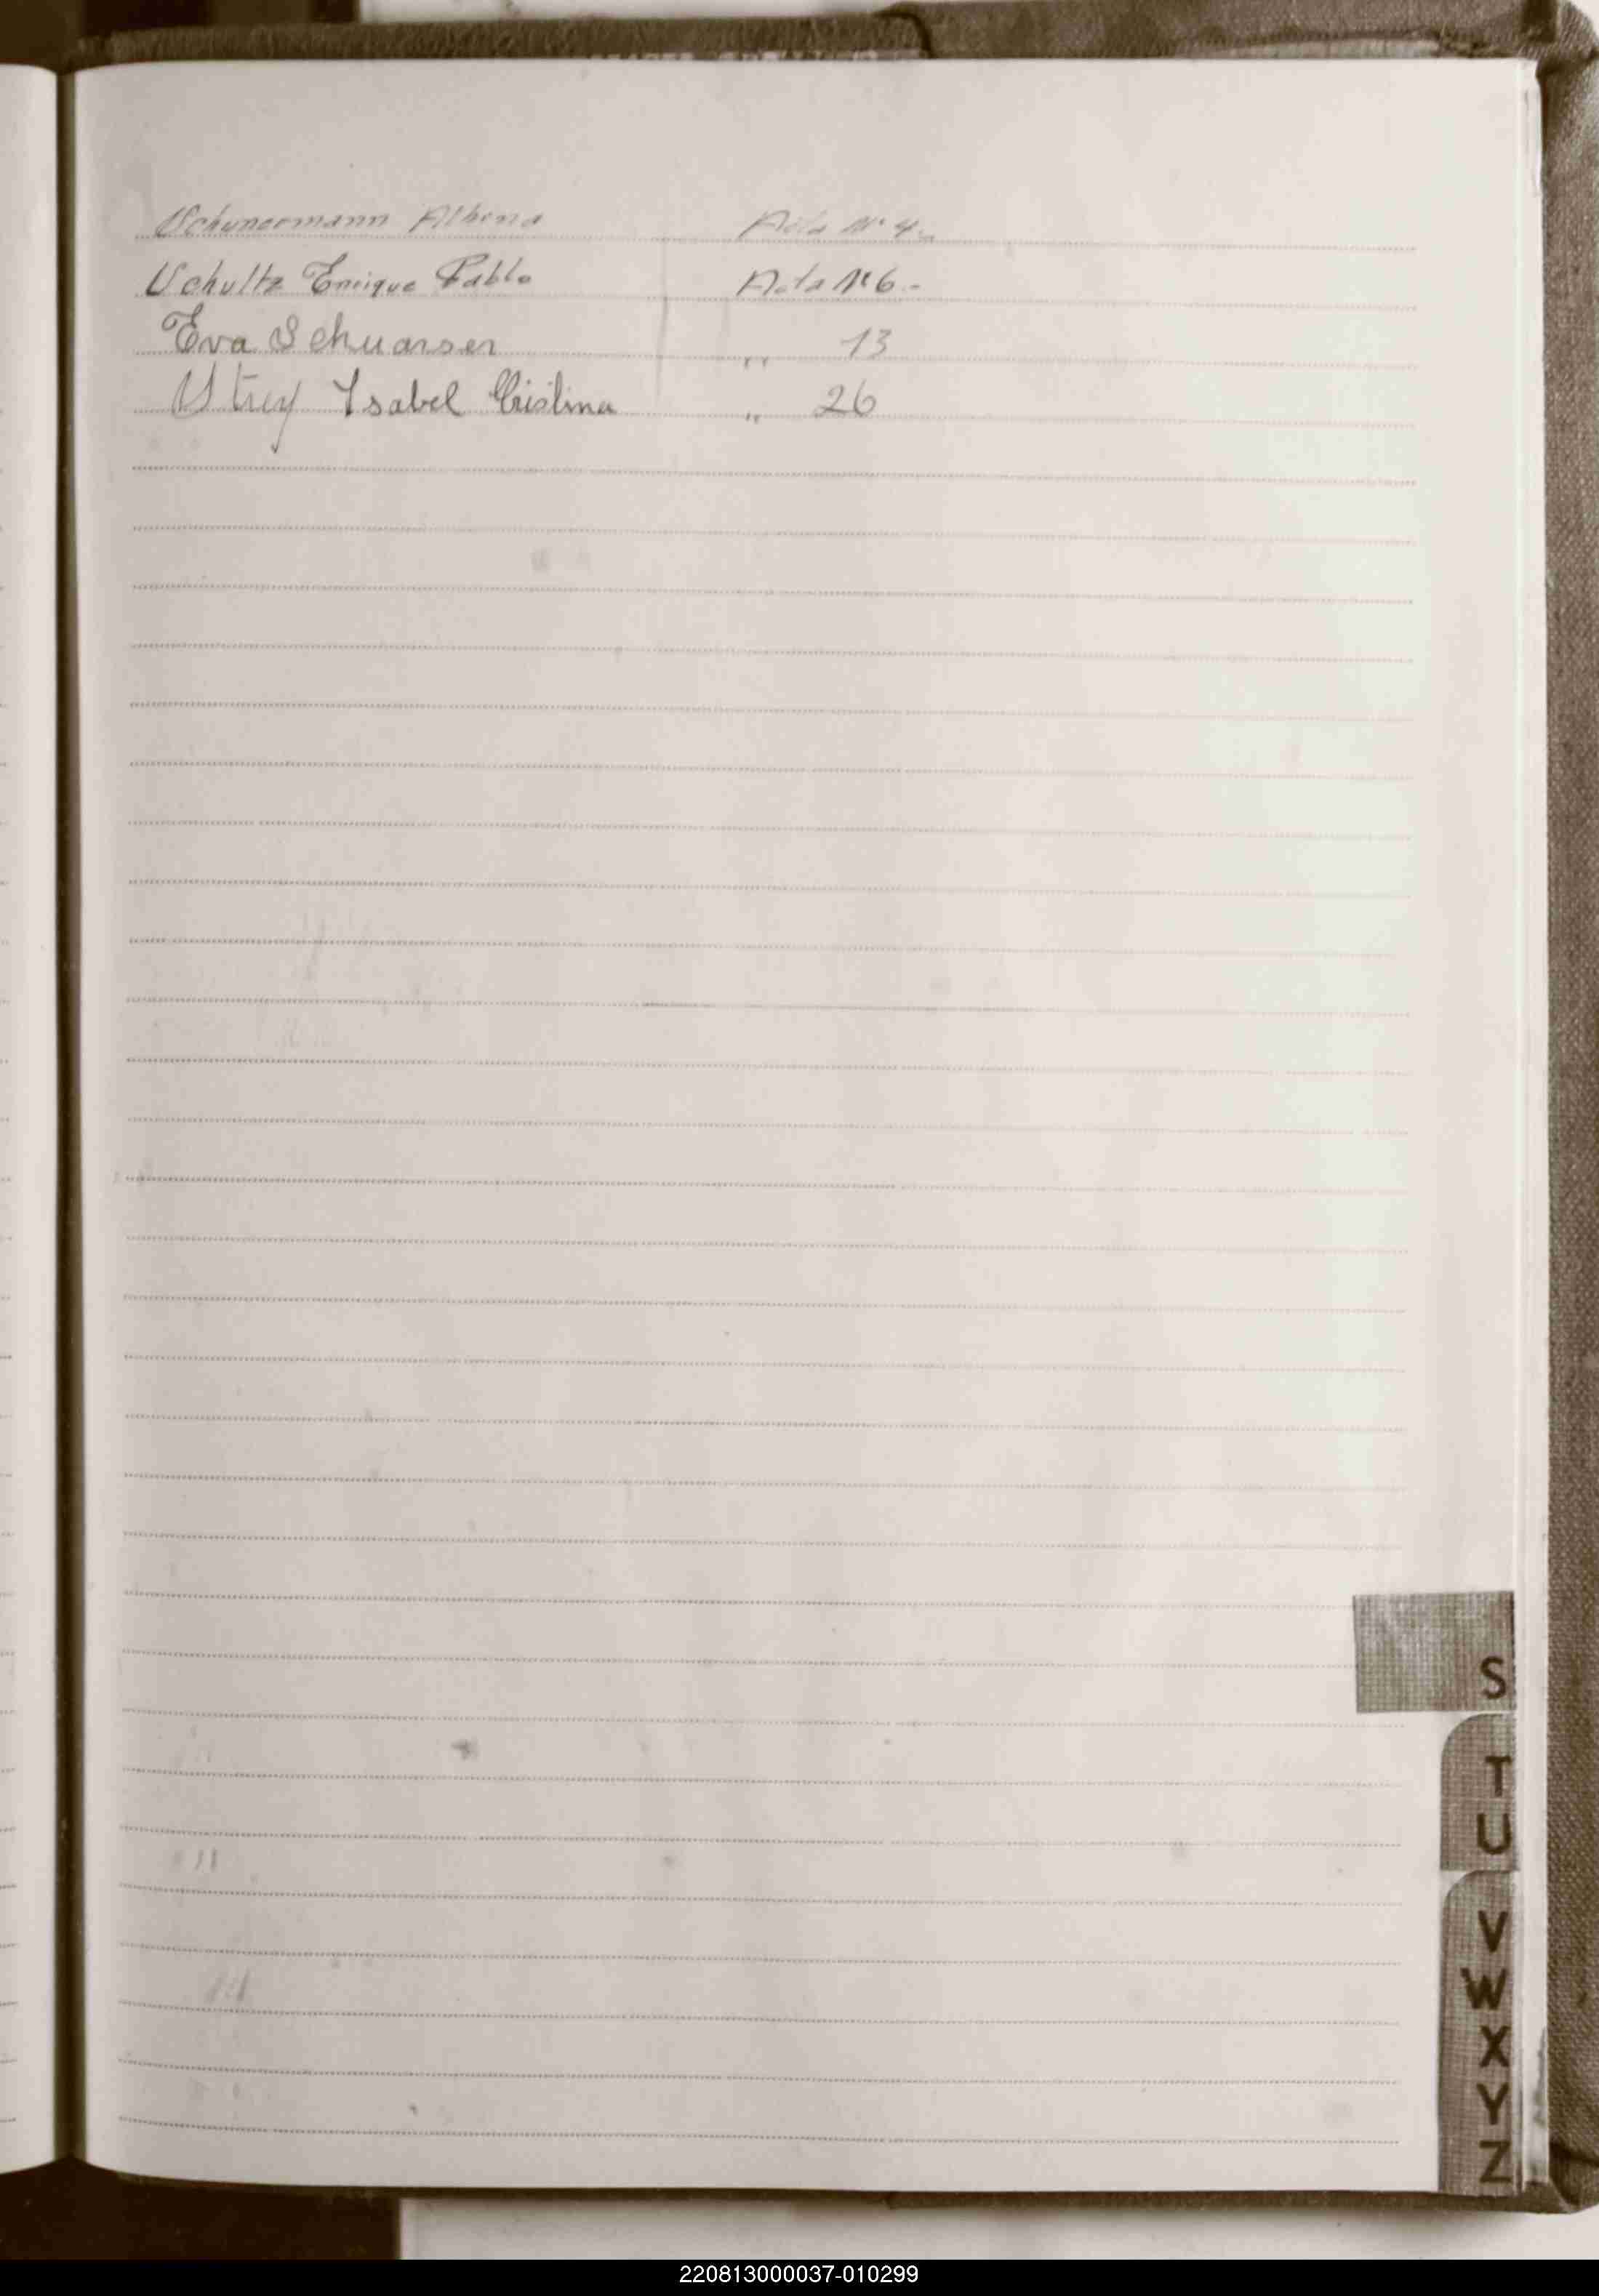 Schunermann Albena Acta Nº 4.-
Schultz Enrique Pablo Acta Nº 6.-
Eva Schuarser „ 13
Strey Ysabel Cristina „ 26
S
T
U
V
W
X
Y
Z
220813000037-010299